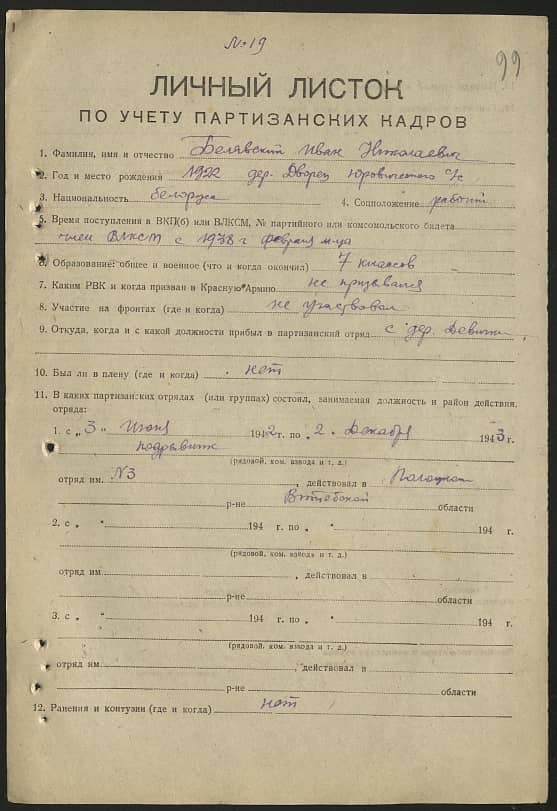 № 19
99
ЛИЧНЫЙ ЛИСТОК
ПО УЧЕТУ ПАРТИЗАНСКИХ КАДРОВ
1. Фамилия, имя и отчество Белявский Иван Николаевич
2. Год и место рождения 1922 дер. Дворец с/с
3. Национальность белорус 4. Соцположение рабочий
5. Время поступления в ВКП(б) или ВЛКСМ, № партийного или комсомольского билета
член ВЛКСМ с 1938 г февраля м-ца
6. Образование: общее и военное (что и когда окончил) 7 классов
7. Каким РВК и когда призван в Красную Армию не призывался
8. Участие на фронтах (где и когда) не участвовал
9. Откуда, когда и с какой должности прибыл в партизанский отряд с дер.
10. Был ли в плену (где и когда) нет
11. В каких партизанских отрядах (или группах) состоял, занимаемая должность и район действия,
отряда:
1. с „3" Июня 1942 г. по „2. Декабря 1943 г.
подрывник
(рядовой, ком. взвода и т. д.)
отряд им. №3, действовал в Полоцком
р-не Витебской области
2. с „ " 194 г. по „ " 194 г.
(рядовой, ком. взвода и т. д.)
отряд им. , действовал в
р-не области
3. с „ " 194 г. по „ " 194 г.
(рядовой, ком. взвода и т. д.)
отряд им. , действовал в
р-не области
12. Ранения и контузии (где и когда) нет